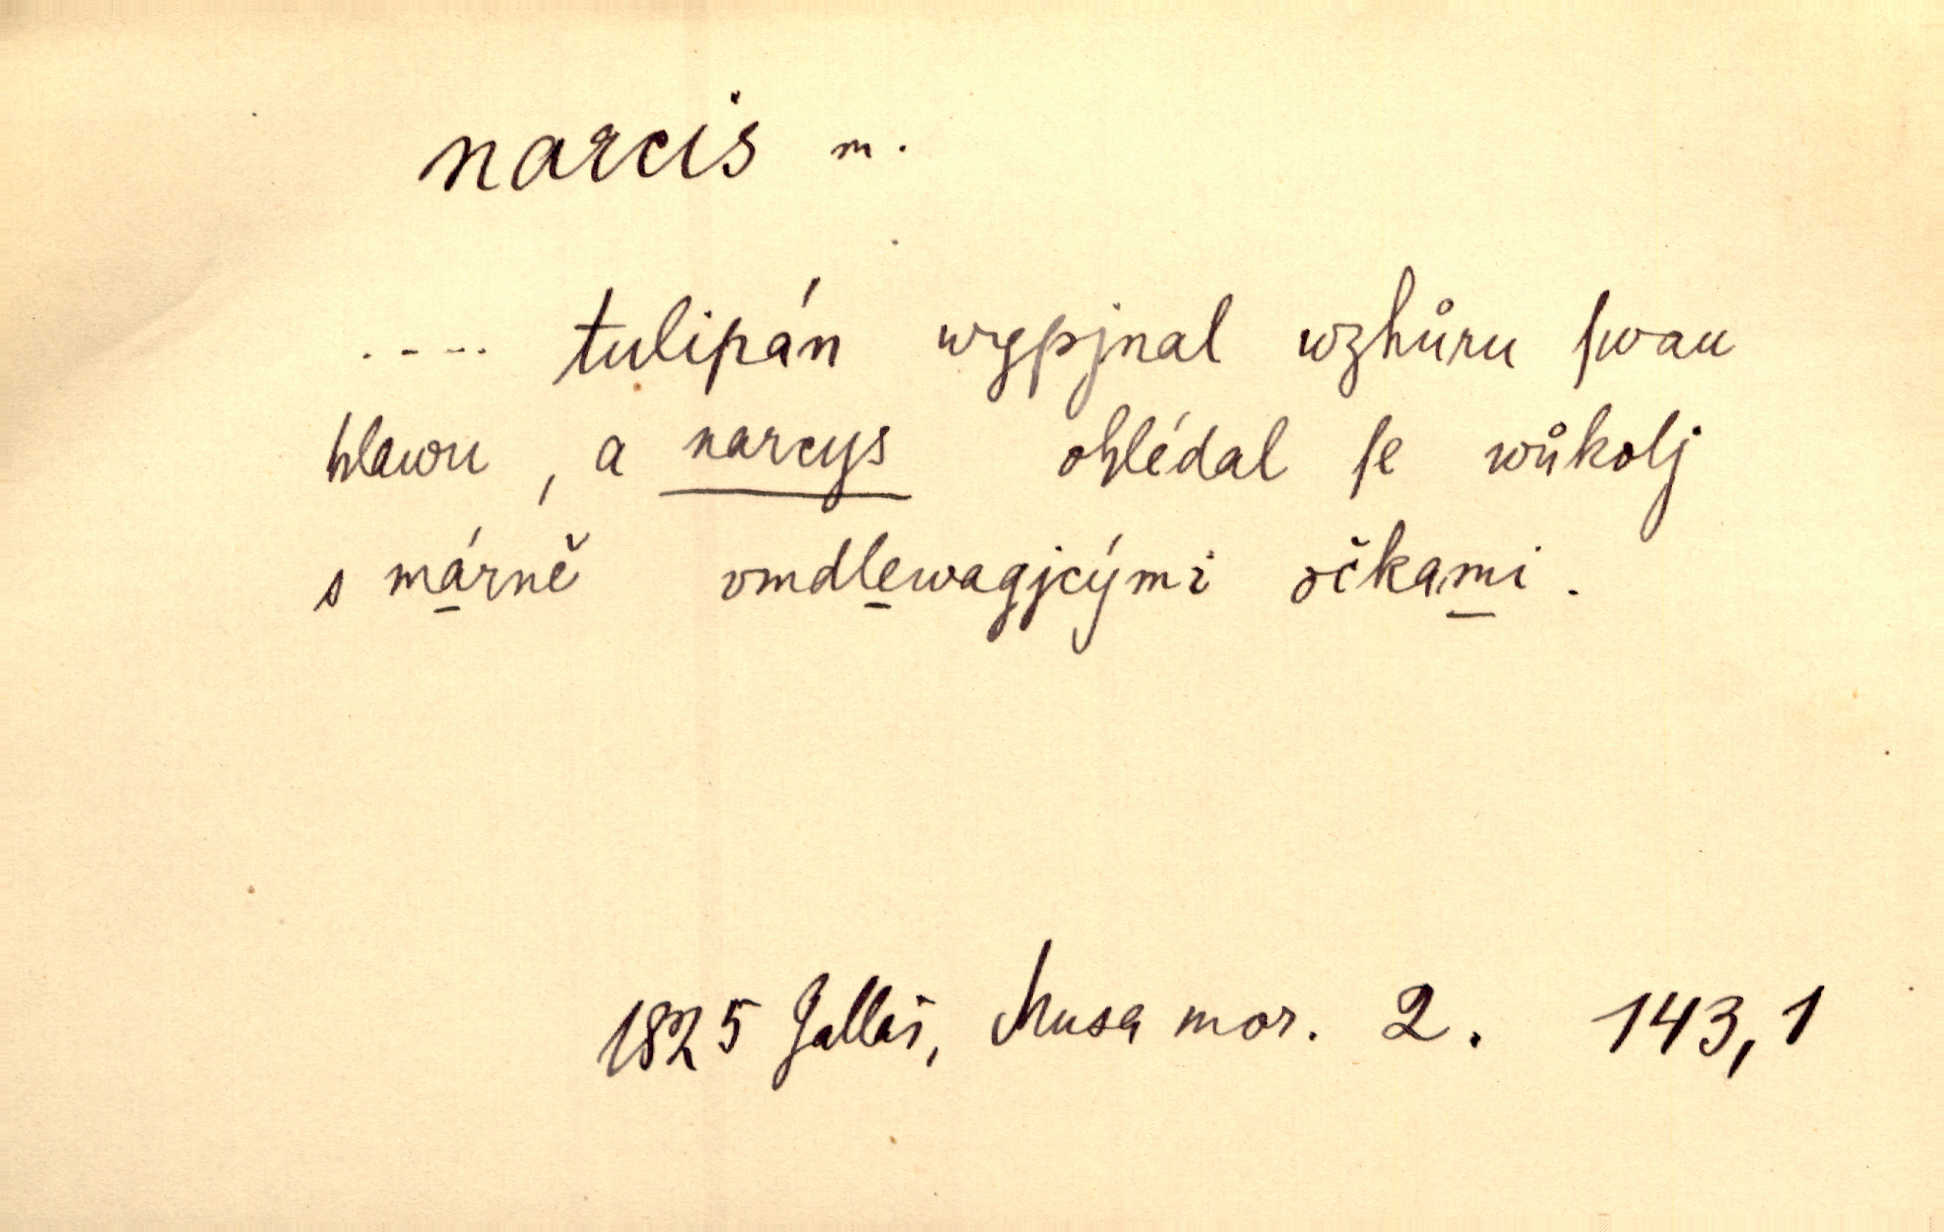 narcis m.
.... tulipán wypjnal wzhůru ſwau
hlawu, a narcys ohlédal ſe wůkolj
s márně omdlewagjcými očkami.
1825 Gallaš, Musa mor. 2. 143,1